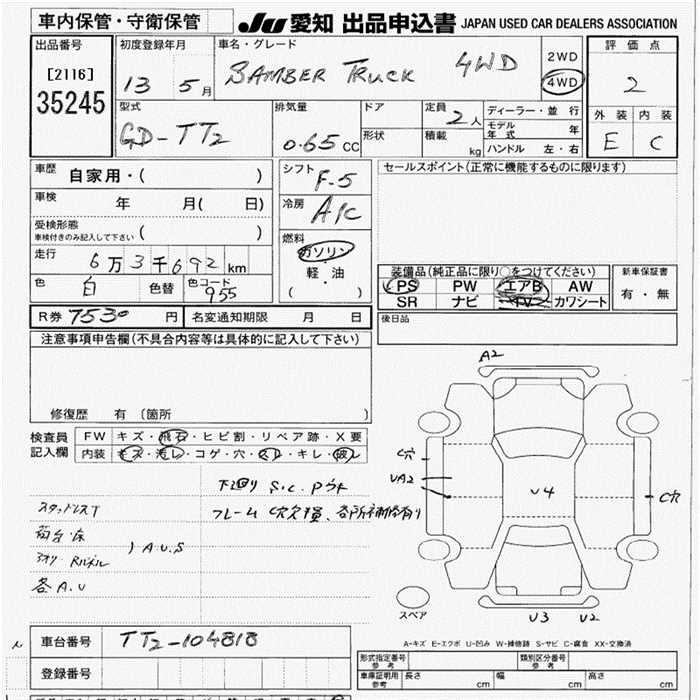 車内保管・守衛保管
JU 愛知 出品申込書 JAPAN USED CAR DEALERS ASSOCIATION
出品番号 初度登録年月 車名・グレード 2WD 評価点
[2116] 13 5月 BAMBER TRUCK 4WD 4WD 2
35245
型式 排気量 ドア 定員 2人 ディーラー・並行 外装 内装
GD-TT2 0.65 CC 形状 積載 kg モデル年式 年 E C
ハンドル 左・右
車歴 自家用・( ) シフト F-5 セールスポイント(正常に機能するものに限ります)
車検 年 月( 日) 冷房 A/C
受検形態
車検付きのみ記入して下さい ( )
燃料
走行 6万3千692km ガソリン
軽・油
( )
色 白 色替 色コード 955
装備品(純正品に限り○をつけてください) 新車保証書
PS PW エアB AW 有・無
SR ナビ TV カワシート
R券 7530 円 名変通知期限 月 日 後日品
注意事項申告欄(不具合内容等は具体的に記入して下さい)
修復歴 有 〔箇所 〕
検査員 FW キズ・飛石・ヒビ割・リペア跡・X要
記入欄 内装 キズ・汚レ・コゲ・穴・スレ・キレ・破レ
下廻り S.C.
スタッドレスT
フレーム C穴
荷台床
アオリ A.U.S
各A.U
A2
C穴
UA2
U4
C穴
スペア
U3 U2
A-キズ E-エクボ U-凹み W-補修跡 S-サビ C-腐食 XX-交換済
車台番号 TT2-104818
登録番号
形式指定番号 参考 類別区分番号 参考
車庫証明用 参考 長さ cm 幅 cm 高さ cm